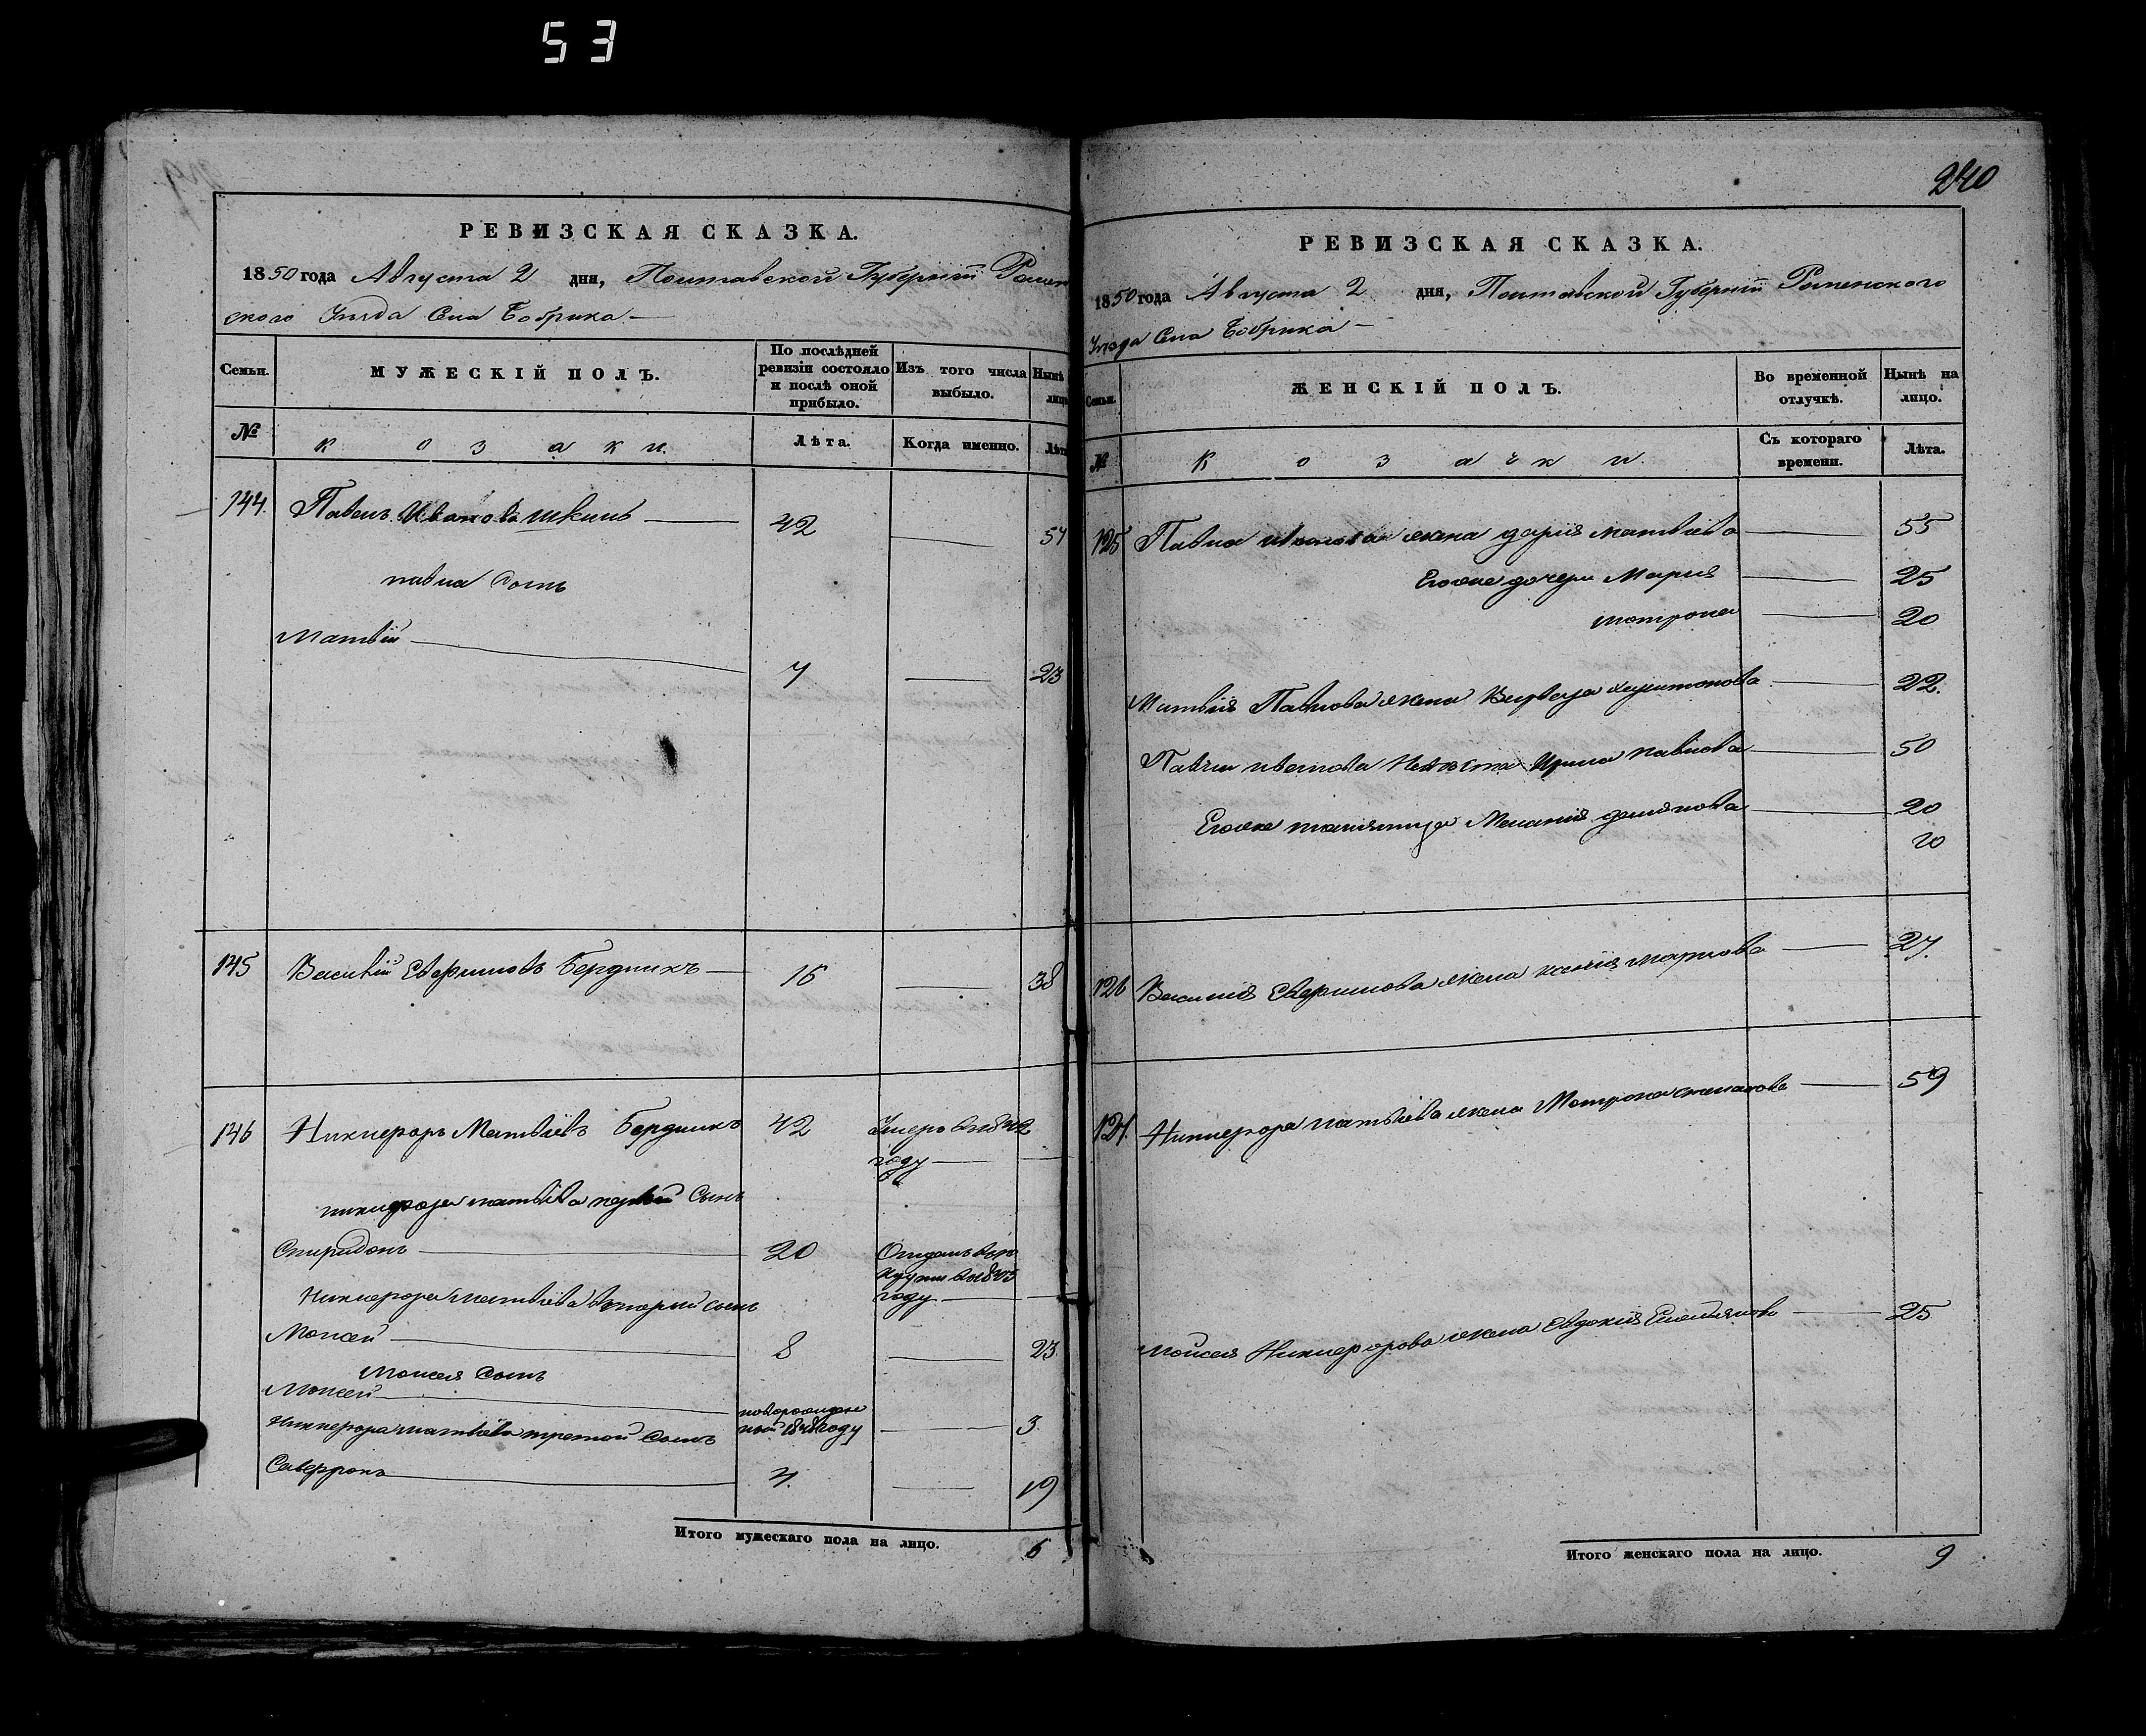 53
РЕВИЗСКАЯ СКАЗКА.
1850 года Августа 2 дня, Полтавской Губерніи Ромен
ского Уезда Села Бобрика
Семьи.
МУЖЕСКІЙ ПОЛЪ.
По послѣдней ревизіи состояло и послѣ оной прибыло.
Изъ того числа выбыло.
Нынѣ лицо
№
козаки.
Лѣта.
Когда именно.
Лѣта
144. Павелъ Иванова 42 57
павла Сынъ
Матвій 7 23
145 Василій Бердникъ 16 38
146 Никифоръ Матвіевъ Бердникъ 42 Умеръ в 1842
году
никифора матвіева первый Сынъ
Спиридонъ 20 Отданъ в ре
крути в 1845
году
Никифора матвіева вторий сынъ
Моисей 8 23
Моисея Сынъ
Моисей новорожден
ный 1848 году 3
Никифора матвіева третой Сынъ
4. 19
Итого мужескаго пола на лицо. 6
240
РЕВИЗСКАЯ СКАЗКА.
1850 года Августа 2 дня, Полтавской Губерніи Роменского
Уезда Села Бобрика
Семьи.
ЖЕНСКІЙ ПОЛЪ.
Во временной отлучкѣ.
Нынѣ на лицо.
№
козачки.
Съ котораго времени.
Лѣта.
125 Павла иванова жена дарія матвіева 55
Егоже дочери Марія 25
мотрона 20
Матвія Павлова жена 22.
Павла иванова Ирина павлова 50
Егоже Меланія 20
20
126 Василія жена ксенія 27.
127. Никифора матвіева жена Мотрона степанова 59
Моисея Никифорова жена Евдокія 25
Итого женскаго пола на лицо. 9